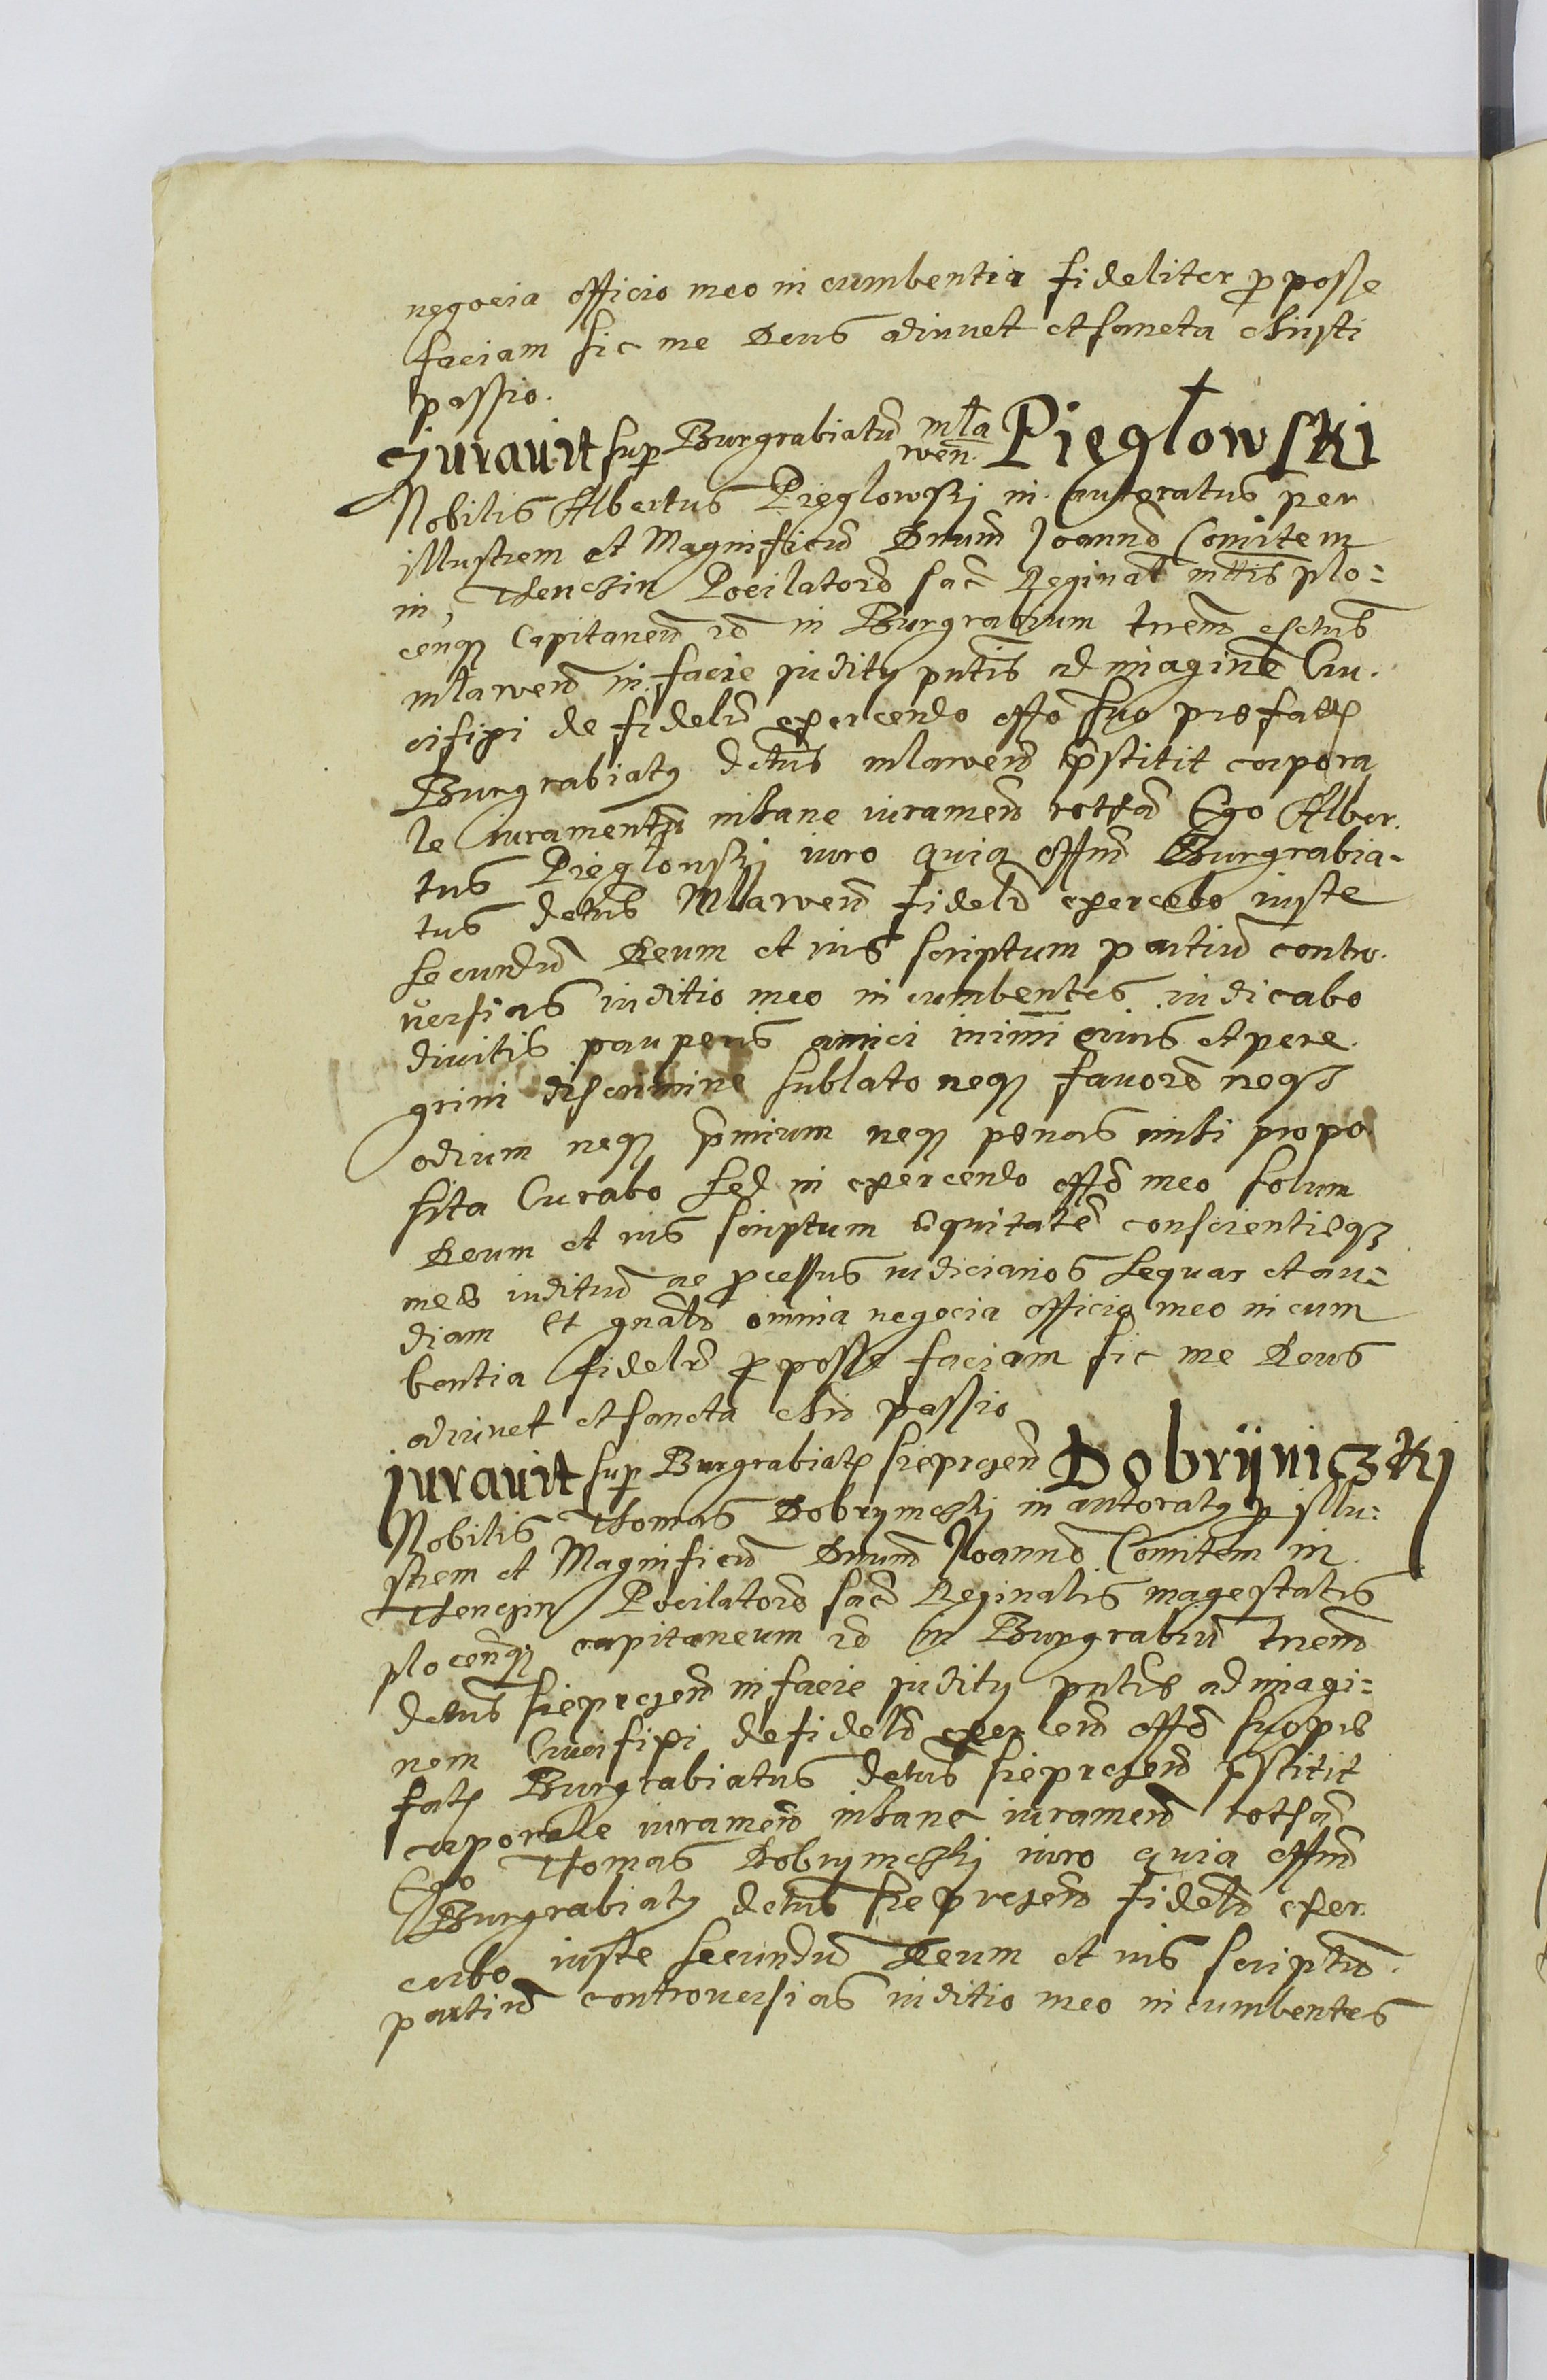 negocia officio meo in cumbentia fideliter ꝓ posse
faciam sic me Deus adiuuet et sancta christi
passio.
Jurauit sup Burgrabiatū mła wen̄. Piegłowski
Nobilis Albertus Pieglowskj in autoratus per
illustrem et Magnificū Dnum Joannē Comitem
in Thenczin Pocilatorē sac̄ Reginal mttis plo:
cenqȝ Capitaneū in Burgrabium trrem
mlaweñ in facie juditij pntis ad imaginē Cru.
cifixi de fidelr̄ exercendo offo suo prefatȩ
Burgrabiatȝ mlaweñ p̄stitit corpora
le iuramentū in hanc iurameñ rotham Ego Alber.
tus Pieglowskj iuro quia offm̄ Burgrabia-
tus Mlaweñ fidelr̄ exercebo iuste
secundū Deum et ius scriptum partiū contro.
uersias iuditio meo in cumbentes iudicabo
diuitis pauperis amici inimi ciuis et pere.
grini discrimine sublato neqȝ fauorē neqȝ
odium neqȝ p̄mium neqȝ penas mihi propo
sita Curabo sed in exercendo offō meo solum
Deum et ius scriptum equitatē conscientieqȝ
mee iuditiū ac ꝓcessus iudiciarios sequar et au:
diam Et gnalr̄ omnia negocia officio meo in cum
bentia fidelr̄ ꝓ posse faciam sic me Deus
adiuuet et sancta chri passio
jurauit sup Burgrabiatȩ sieprceñ Dobrÿniczkj
Nobilis Thomas Dobrymczkj in autoratȝ ꝑ illu:
strem et Magnificū Dnum Joannē Comitem in
Thenczin Pocilatorē sac̄ Reginalis magestatis
plocenqȝ capitaneum in Burgrabiū trrem
sieprceñ in facie juditij pntis ad imagi:
nem Crucifixi de fidelr̄ exerceñ offō suo pre
fatȩ Burgrabiatus sieprceñ p̄stitit
corporale iurameñ in hanc iurameñ rotham
Ego Thomas Dobrymczkj iuro quia offm̄
Burgrabiatȝ sieprceñ fidelr̄ exer.
cebo iuste secundū Deum et ius scriptū.
partiū controuersias iuditio meo in cumbentes